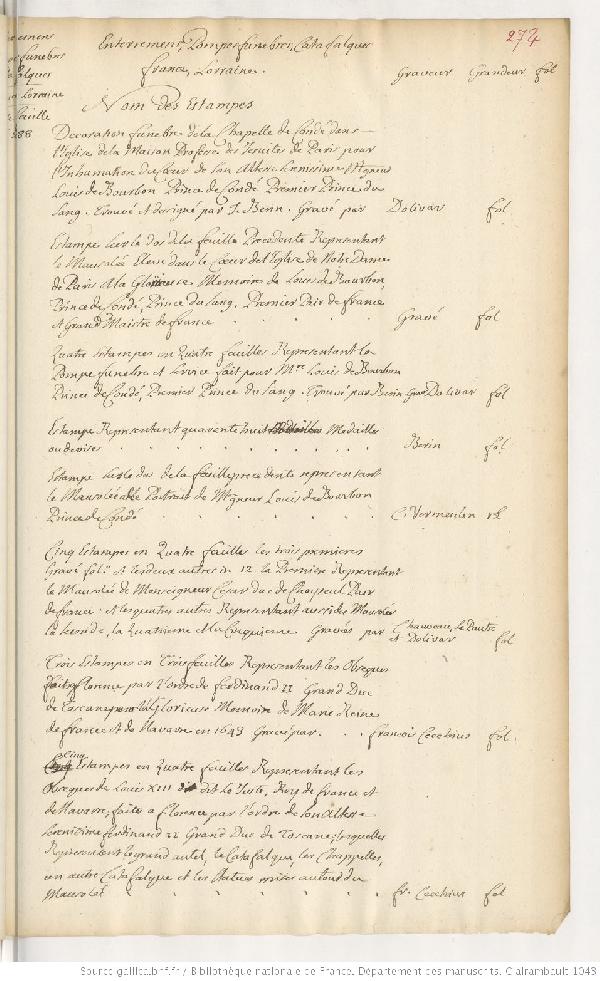 274
Enterremens, Pompes funebres, Catafalques
france, Lorraine.
Graveur Grandeur fol
Nom des Estampes
Decoration funebre de la Chapelle de Condé dans
l'Eglise de la Maison Professe des Jesuites de Paris pour
l'Inhumation du Cœur de son Altesse Serenissime
Louis de Bourbon Prince de Condé Premier Prince du
Sang. Trouvé et designé par J. Berin. Gravé par Dolivar fol
Estampe sur le dos de la feuille Precedente Representant
le Mausolée Elevé dans le Cœur de l'Eglise de Notre Dame
de Paris A la Glorieuse Memoire de Louis de Bourbon,
Prince de Condé, Prince du Sang. Premier Pair de france
et Grand Maistre de france . . . Gravé fol
Quatre Estampes en Quatre feuilles Representant la
Pompe funebre et Service fait pour Mre Louis de Bourbon
Prince de Condé, Premier Prince du Sang. Trouvé par Berin Gravé Dolivar fol
Estampe Representant quarente huit Medailles
ou devises . . . Berin fol
Estampe sur le dos de la feuille precedente representant
le Mausolée et le Portrait de Mgneur Louis de Bourbon
Prince de Condé . . . C. Vermeulen
Cinq Estampes en Quatre feuilles les trois premieres
Gravé fol. et les deux autres in 12 la Premiere Representant
le Mausolée de Monseigneur Cesar Duc de Choiseul Pair
de france. et les quatres autres Representant
la Seconde, la Quatrieme et la Cinquieme Gravées par Chauveau, le Pautre
et Dolivar fol
Trois Estampes en Trois feuilles Representant les Obseques
faites a florence par l'ordre de ferdinand II Grand Duc
de Toscane pour la Glorieuse Memoire de Marie Reine
de france et de Navarre en 1643 Gravé par . . . francois Cecchius fol.
Cinq Estampes en Quatre feuilles Representant les
Obseques de Louis XIII dit le Juste, Roy de france et
de Navarre, faites a florence par l'ordre de son Altesse
Serenissime ferdinand II Grand Duc de Toscane; lesquelles
Representent le grand autel, le Catafalque, les Chappelles,
un autre Catafalque et les Statues mises autour du
Mausolée . . . fr. Cecchius fol
Source gallica.bnf.fr / Bibliothèque nationale de France. Département des manuscrits. Clairambault 1043